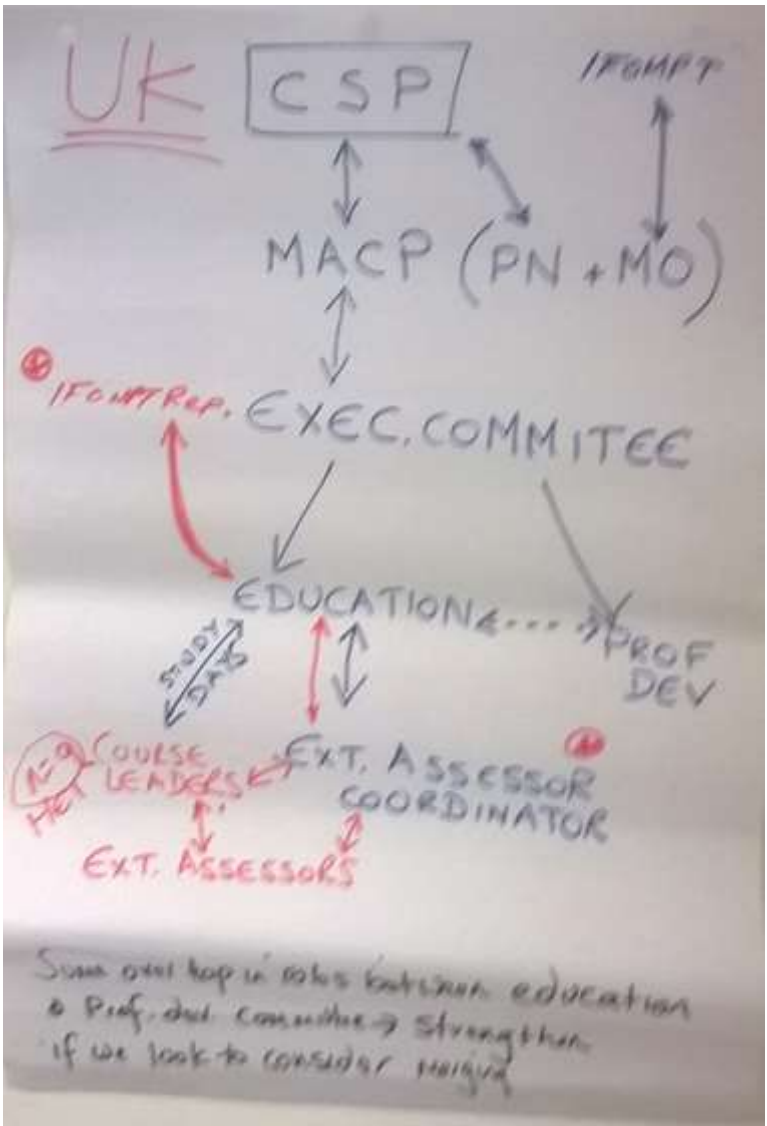 UK
CSP
IFOMPT
MACP (PN + MO)
IFOMPT Rep.
EXEC. COMMITEE
EDUCATION
STUDY
DAYS
PROF
DEV
N=9
HEI
COURSE
LEADERS
EXT. ASSESSOR
COORDINATOR
EXT. ASSESSORS
Some over lap in roles between education
& Prof. dev. Committee → Strengthen
if we look to consider